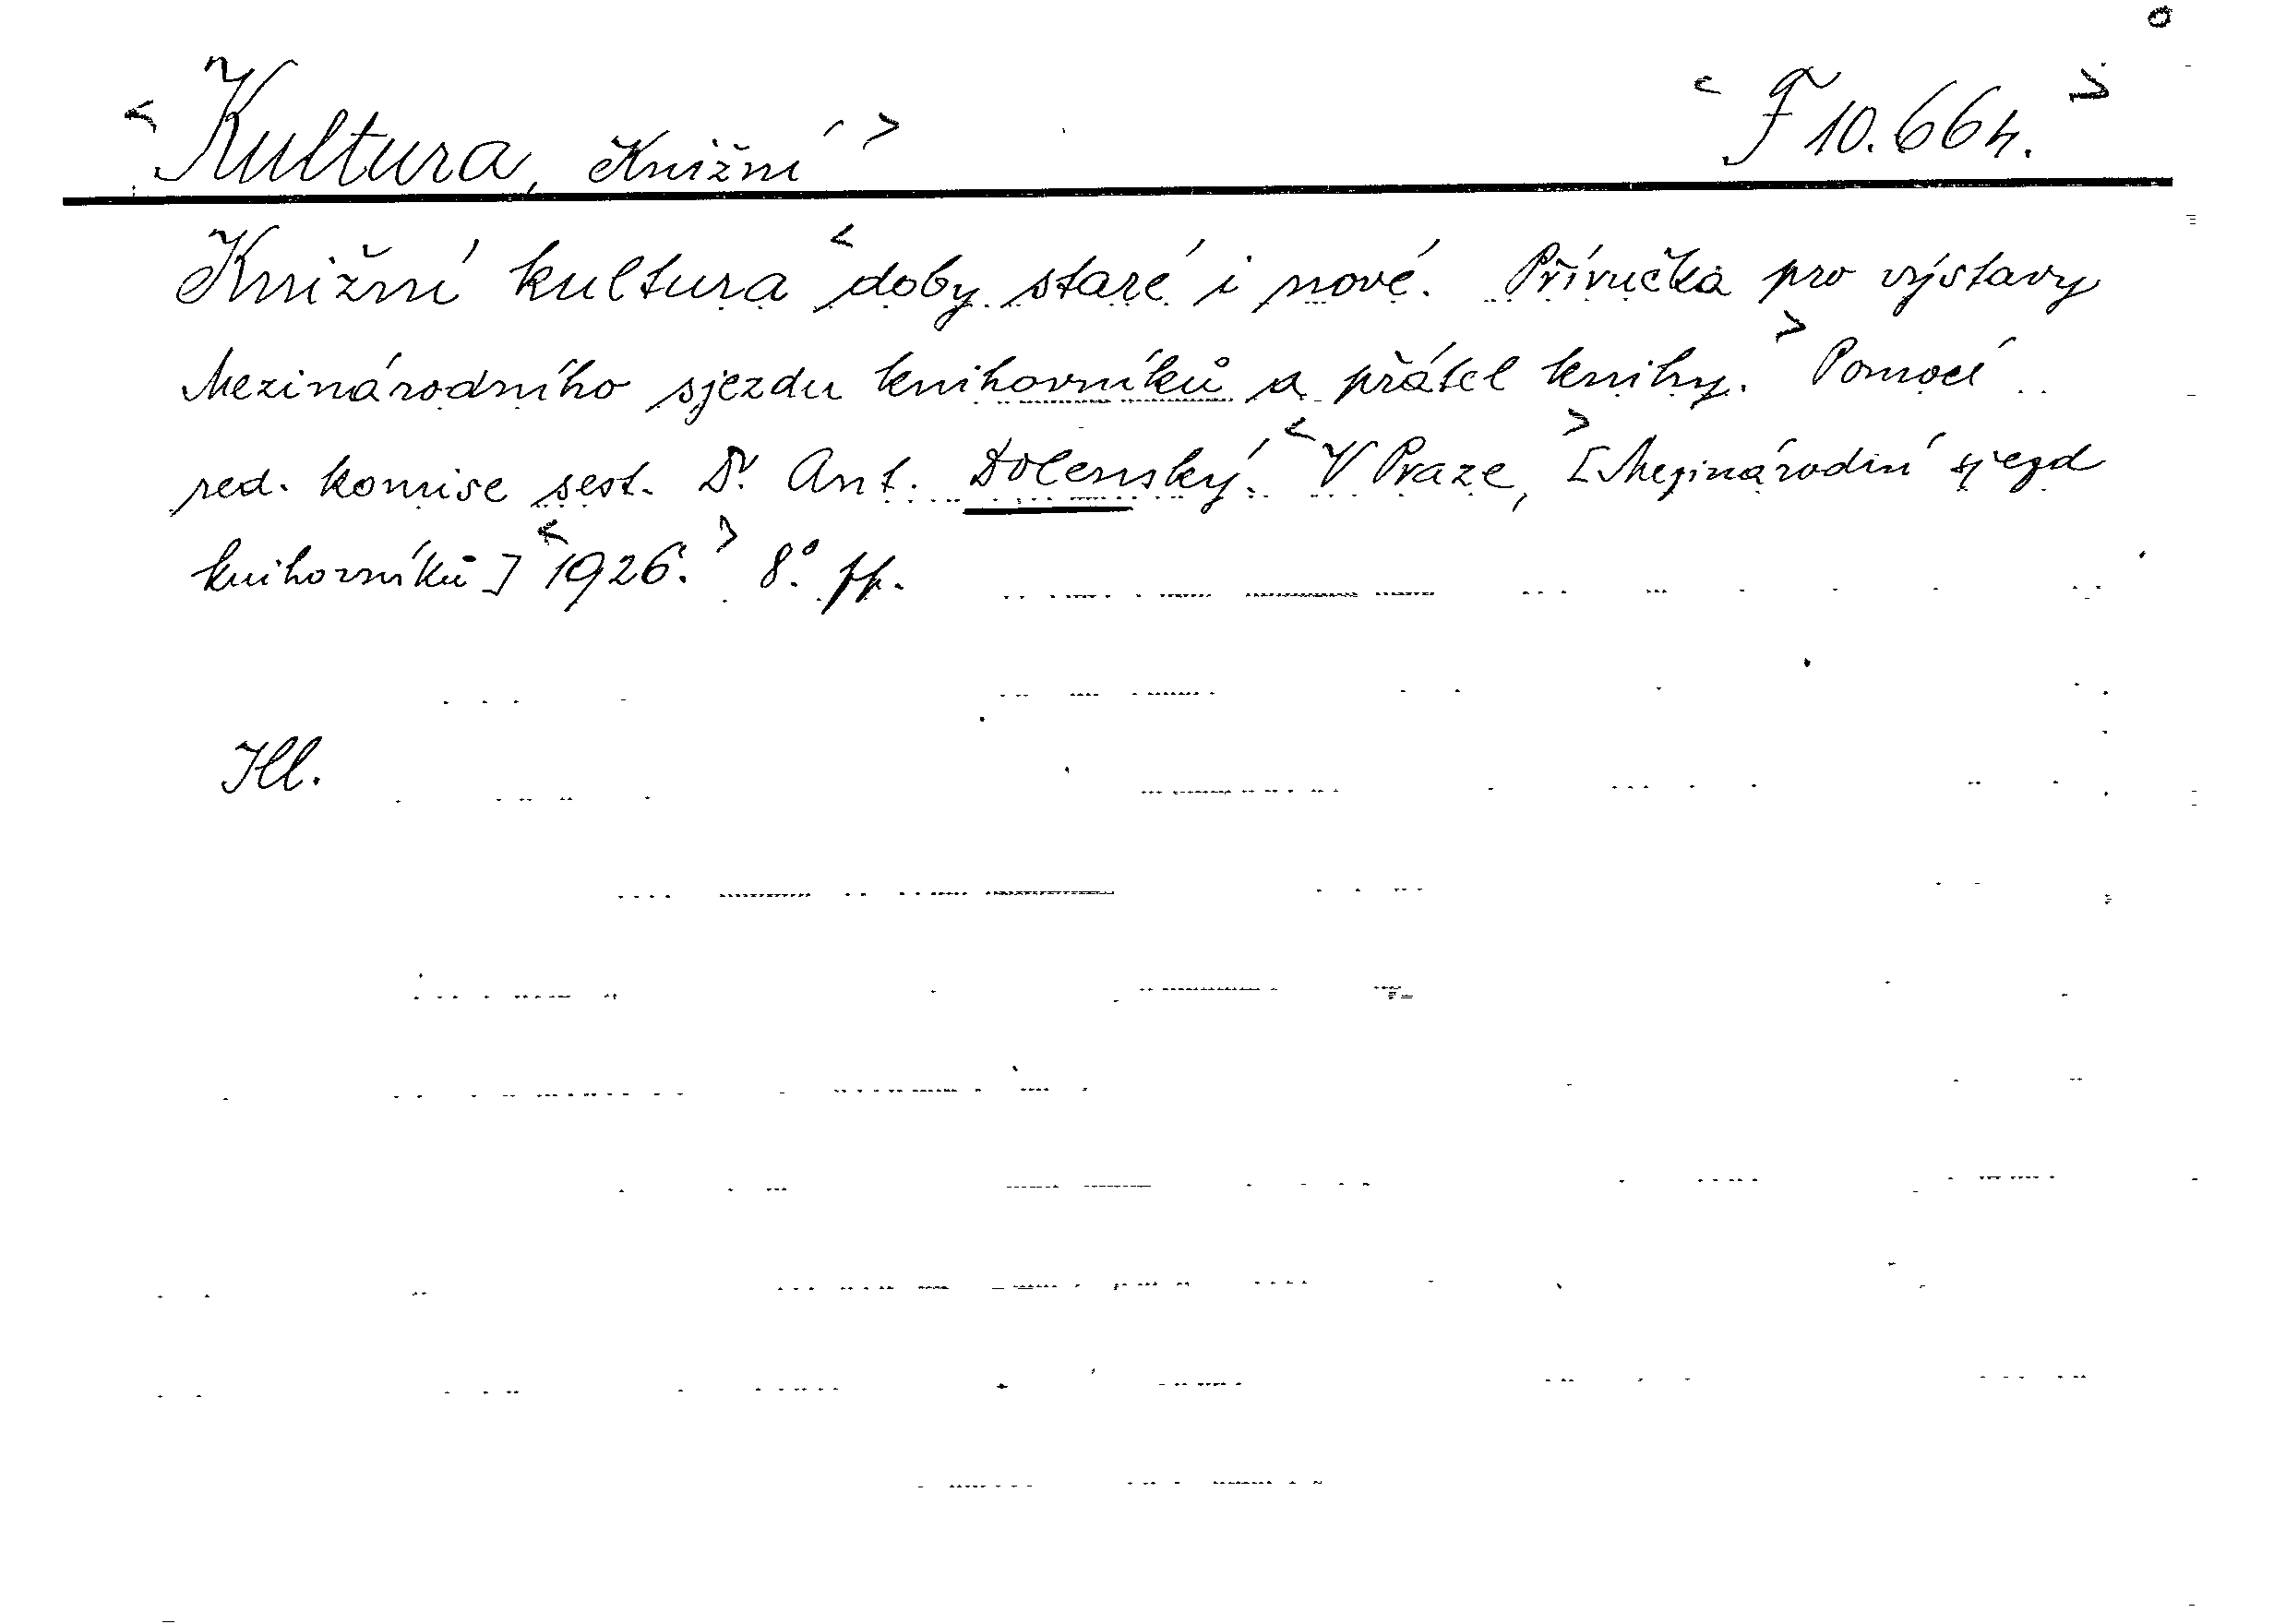 <Kultura, Knižní> <F 10.664.>
Knižní kultura <doby staré i nové. Příručka pro výstavy
Mezinárodního sjezdu knihovníků a přátel knihy.> Pomocí
red. komise sest. Dr. Ant. Dolenský. <V Praze,> [Mezinárodní sjezd
knihovníků] <1926.> 8°.
Ill.